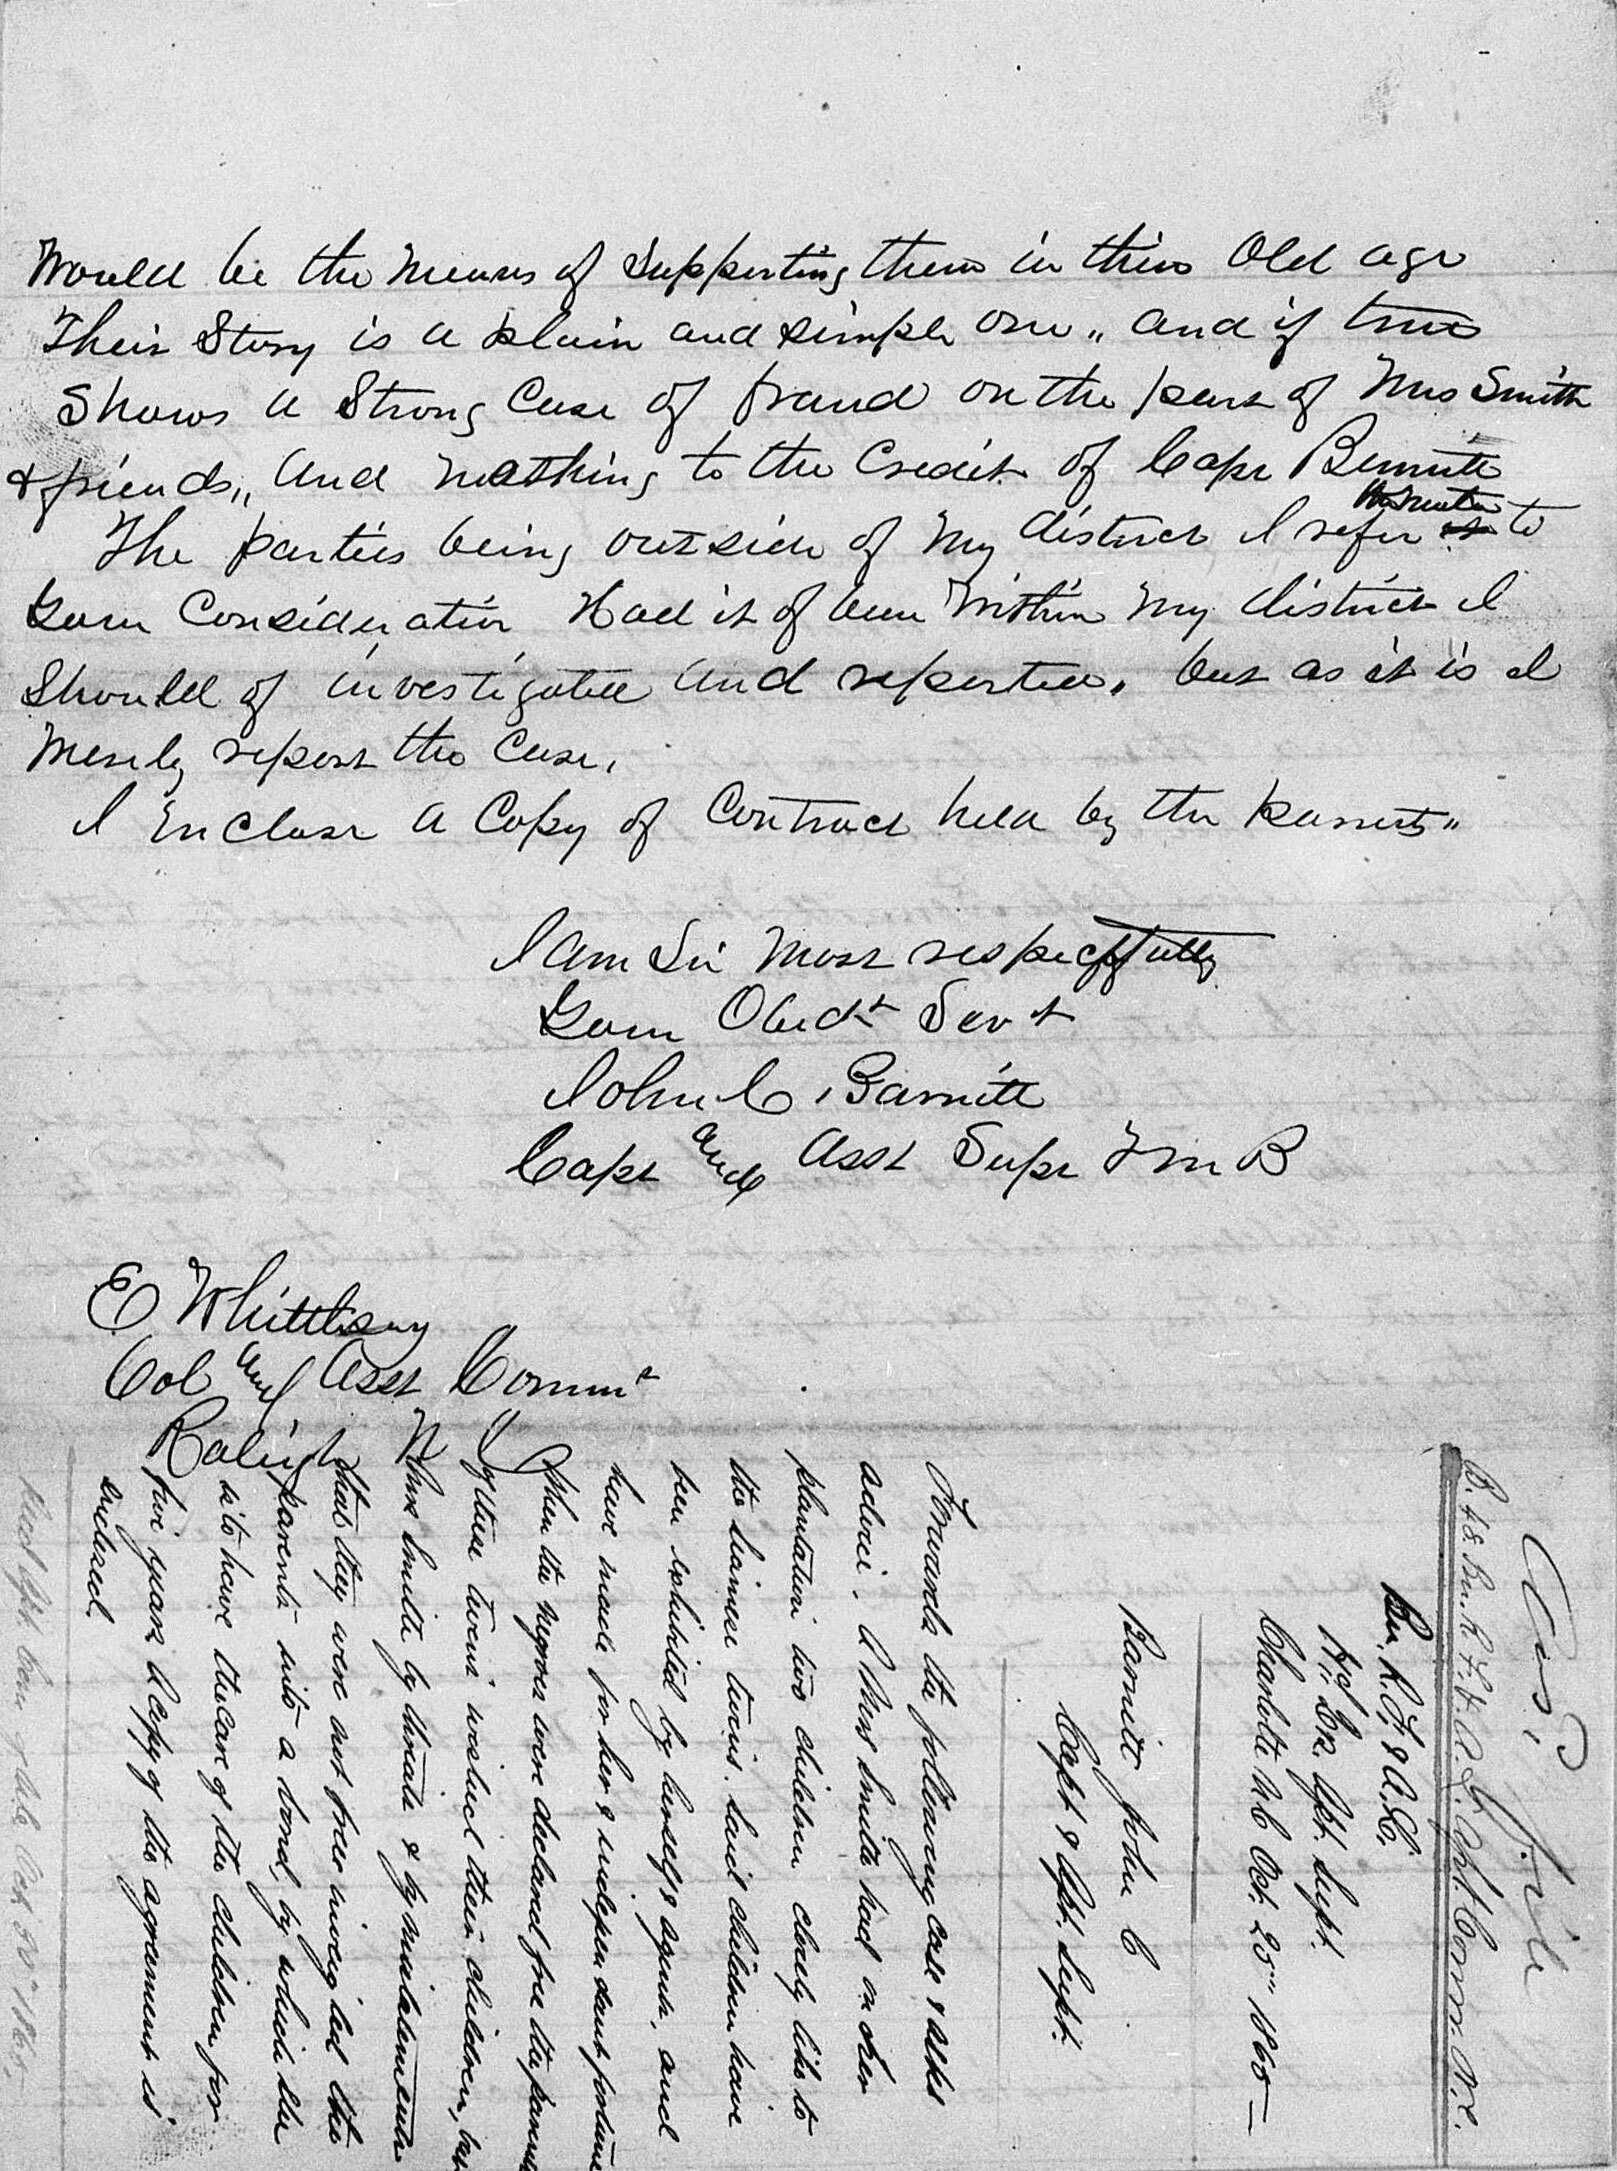 Would be the means of Supporting them in thier Old age
Their Story is a plain and simple one,, and if true
Shows a Strong Case of fraud on the part of Mrs Smith
& friends,, And nothing to the Credit of Capt Bennett
The parties being outside of my district I refer to
Your Consideration Had it of been Within my district I
Should of investigated And reported. but as it is I
Merely report the Case.
I Enclose a Copy of Contract held by the parents,,
I Am Sir Most respectfully
Your Obedt Servt
John C. Barnett
Capt and Asst Supt Frn B
E Whittlesey
Col and Asst Commr
Raleigh N C
File
B. 48. Bu. R. F. & A. L. Asst. Comm. N.C.
Bu. R. F. & A. L.
Asst. Supt.
Charlotte N C Oct. 25" 1865
Barnett John C
Capt & Asst. Supt.
Forwards the following case & asks
advice. A Mrs Smith had on her
plantation two children closely like to
the Siamese twins. Said children have
been exhibited by herself & agents, and
have made for her & independant fortune
When the negroes were declared free the parents
of these twins wished their children, but
Mrs Smith by threats & by misstatements
that they were not free inveigled the
parents into a bond, by which she
is to have the care of the children for
five years A Copy of the agreement is
enclosed.
Recd Asst. Com Oct 30" 1865